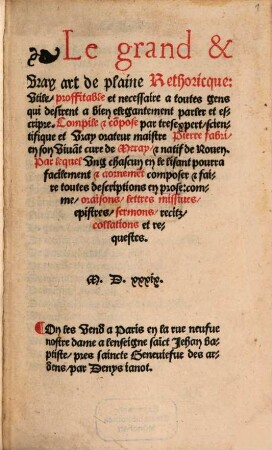 Le grand &
vray art de plaine Rethoricque:
Utile/ proffitable et necessaire a toutes gens
qui desirent a bien elegantement parler et es-
cripre. Compile & cõpose par tresexpert/ scien-
tifique et vray orateur maistre Pierre fabri
en son vivãt cure de Meray/ & natif de Rouen.
Par lequel ung chascun en le lisant pourra
facilement & aornemẽt composer & fai-
re toutes descriptions en prose: com-
me/ oraisons/ lettres missives/
epistres/ sermons/ recitz/
collations et re-
questes.
M. D. xxxix.
On les vend a Paris en la rue neufue
nostre dame a lenseigne saict Jehan bap-
tiste/ pres saincte Geneuiefue des ar-
dens/ par Denys ianot.